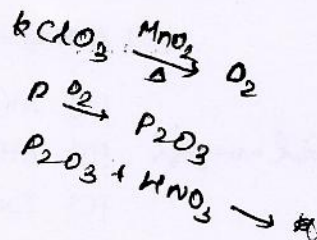 KClO3 MnO2 → Δ O2
P O2 → P2O3
P2O3 + HNO3 →